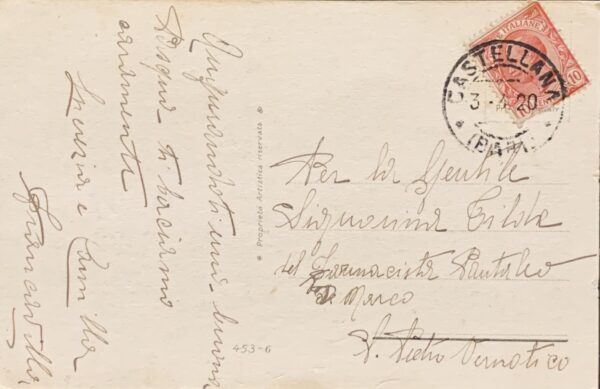 Augurandoti una buona
Pasqua ti baciamo
caramente
Lucrezia e Camilla
Francavilla
Proprietà Artistica Riservata
453-6
POSTE ITALIANE
10
CASTELLANA
3 - 4. 20
(BARI)
Per la Gentile
Signorina Tilde
del Farmacista Pantaleo
de Marco
S. Pietro Vernotico